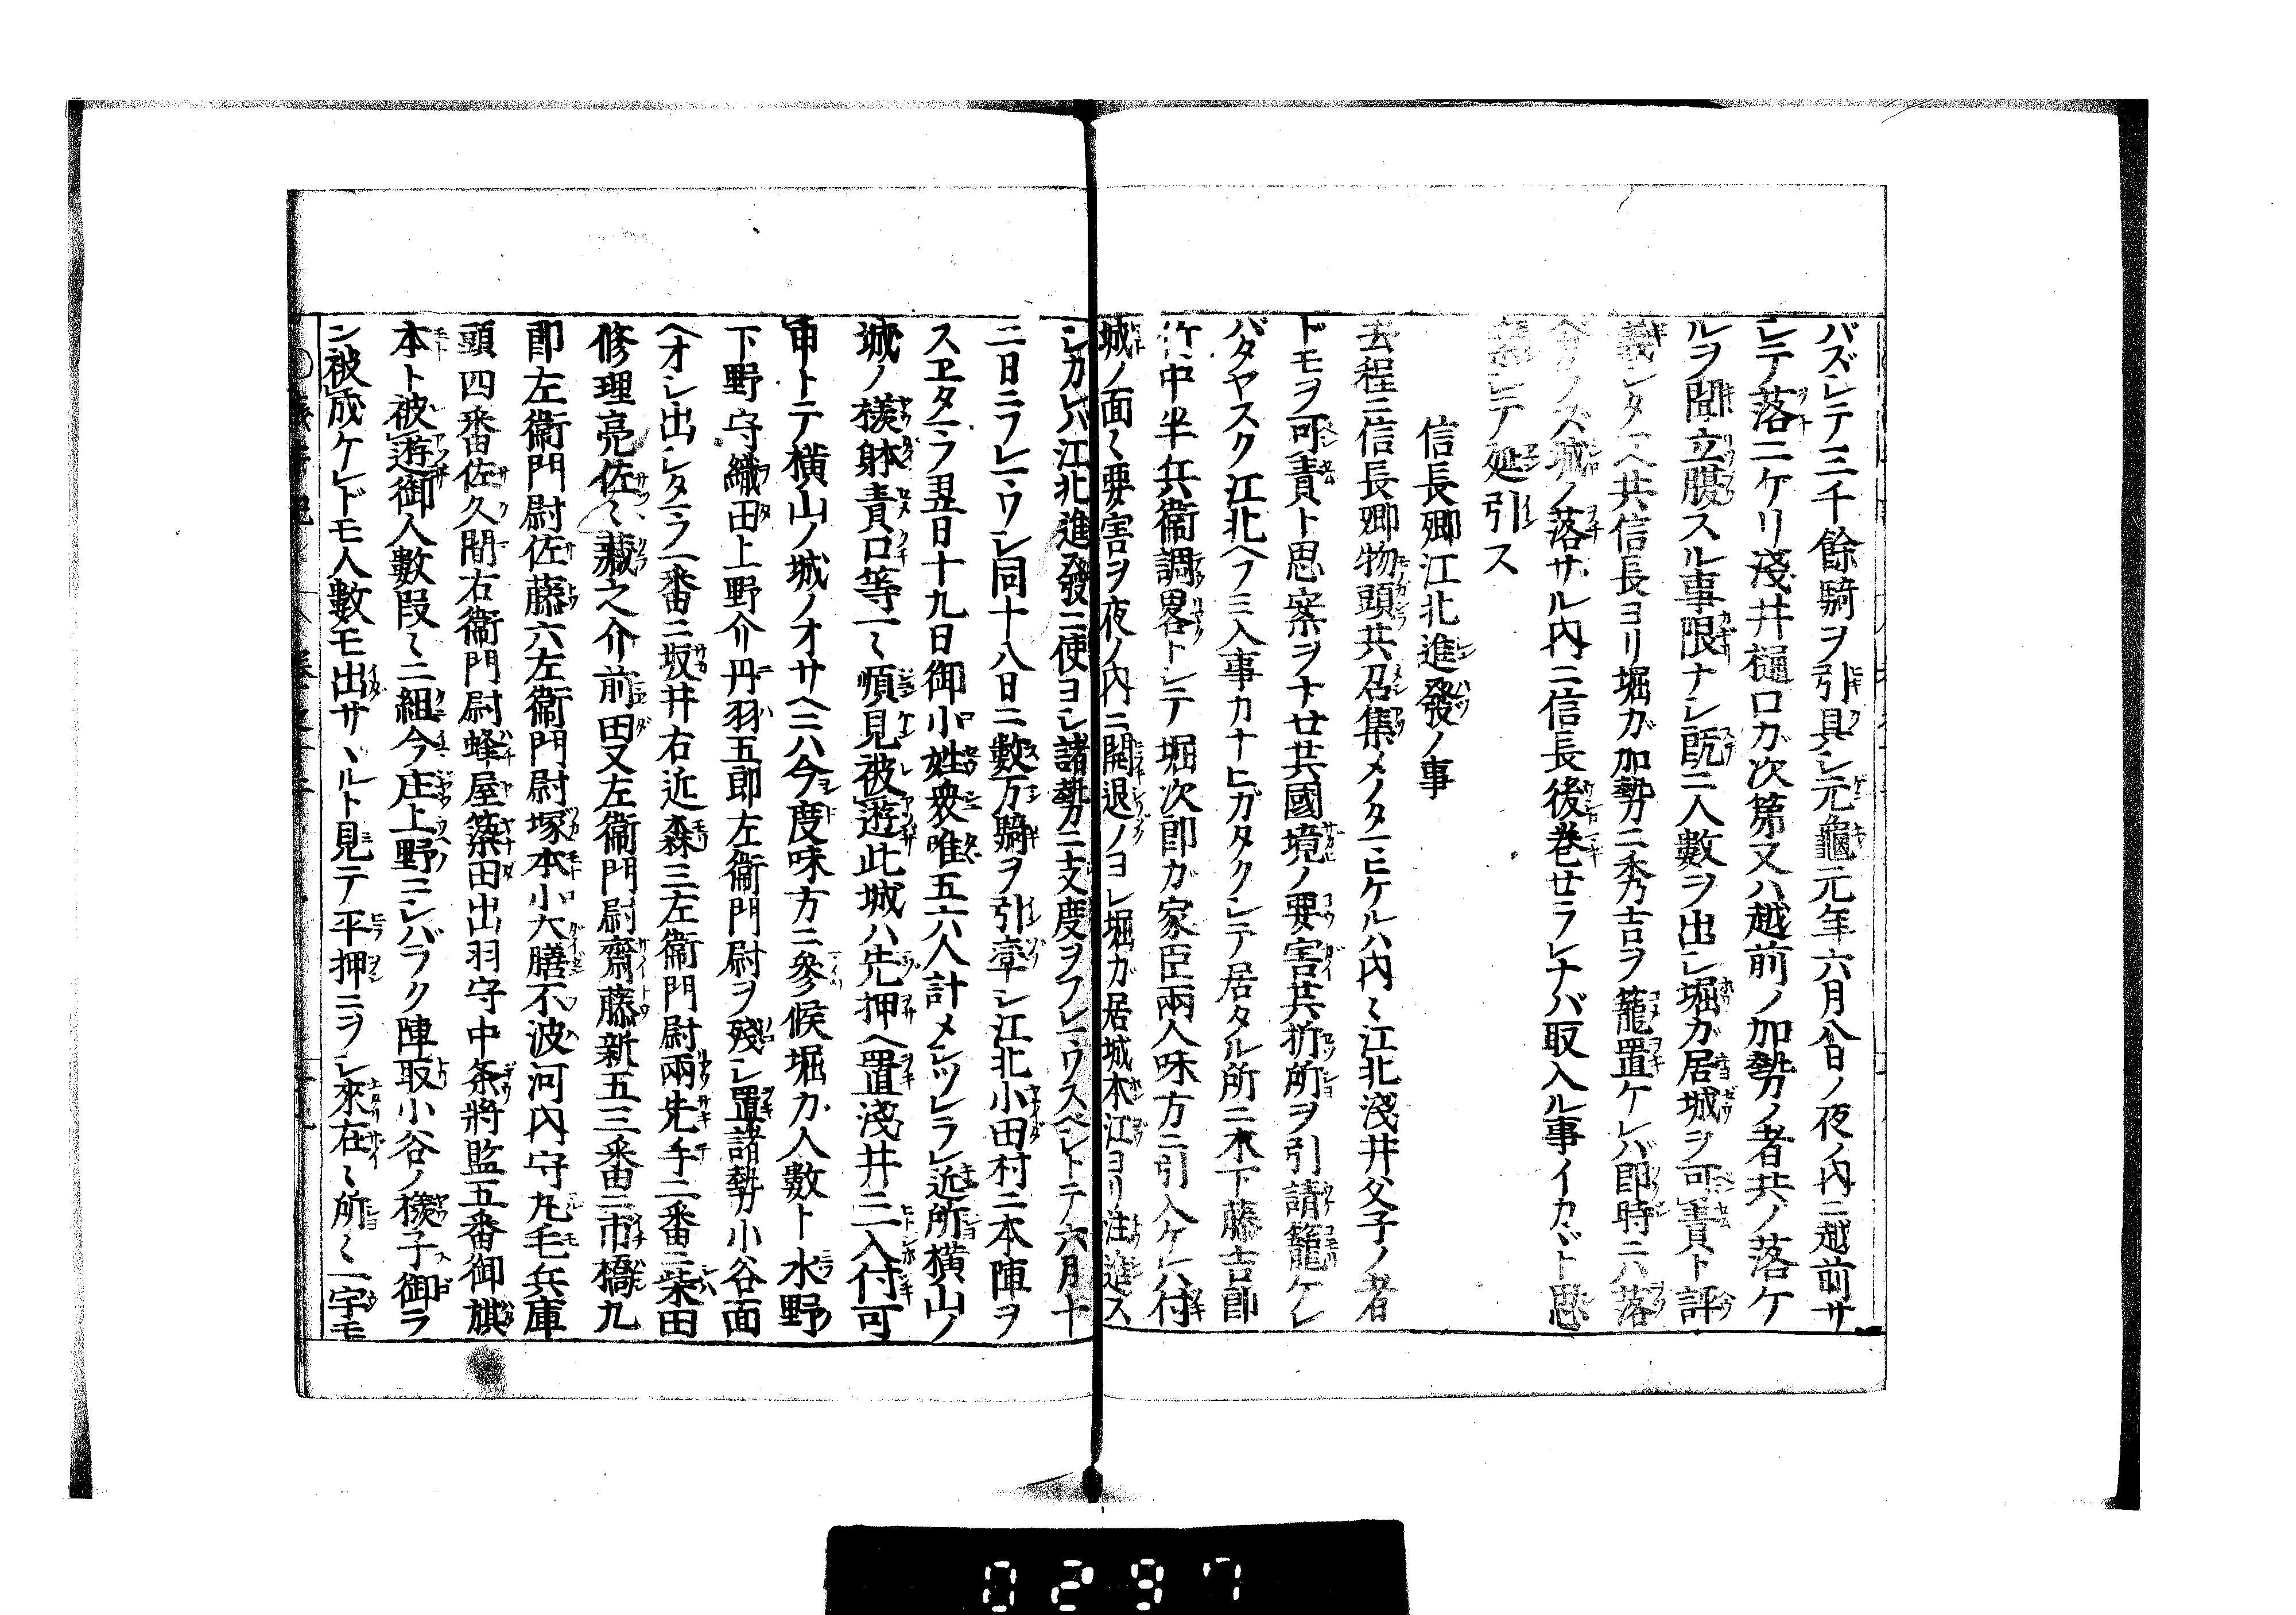 バズレテ三千餘騎ヲ引具シ元龜元年六月八日ノ夜ノ内ニ越前サ
シテ落ニケリ淺井樋口ガ次第又ハ越前ノ加勢ノ者共ノ落ケ
ルヲ聞立腹スル事限ナシ既ニ人數ヲ出シ堀ガ居城ヲ可責ト評
義シタヘ共信長ヨリ堀ガ加勢ニ秀吉ヲ籠置ケレバ即時ニハ落
ベカラズ城ノ落サル内ニ信長後巻セラレナバ取入ル事イカヾト思
案シテ延引ス
信長卿江北進發ノ事
去程ニ信長卿物頭共召集メノタマヒケルハ内〻江北淺井父子ノ者
ドモヲ可責ト思案ヲナセ共國境ノ要害共折所ヲ引請籠ケレ
バタヤスク江北ヘフミ入事カナヒガタクシテ居タル所ニ木下藤吉郎
竹中半兵衞調畧トシテ堀次郎ガ家臣兩人味方ニ引入ケレハ付
城ノ面〻要害ヲ夜ノ内ニ開退ノヨシ堀ガ居城本江ヨリ注進ス
シカレハ江北進發ニ使ヨシ諸勢ニ支度ヲフレマウスベシトテ六月十
二日ニフレマウシ同十八日ニ數万騎ヲ引率シ江北小田村ニ本陣ヲ
スヱタマフ翌日十九日御小姓衆唯五六人計メシツレラレ近所横山ノ
城ノ様躰責口等一〻順見被遊此城ハ先押ヘ置淺井ニ入付可
申トテ横山ノ城ノオサヘニハ今度味方ニ參候堀カ人數ト水野
下野守織田上野介丹羽五郎左衞門尉ヲ殘シ置諸勢小谷面
ヘオシ出シタマフ一番ニ坂井右近森三左衞門尉兩先手二番ニ柴田
修理亮佐〻藏之介前田又左衞門尉齋藤新五三番ニ市橋九
郎左衞門尉佐藤六左衞門尉塚本小大膳不波河内守丸毛兵庫
頭四番佐久間右衞門尉蜂屋簗田出羽守中条將監五番御旗
本ト被遊御人數段〻ニ組今庄上野ニシバラク陣取小谷ノ樣子御ラ
ン被成ケレドモ人數モ出サヾルト見テ平押ニヲシ來在〻所〻一宇モ
0297